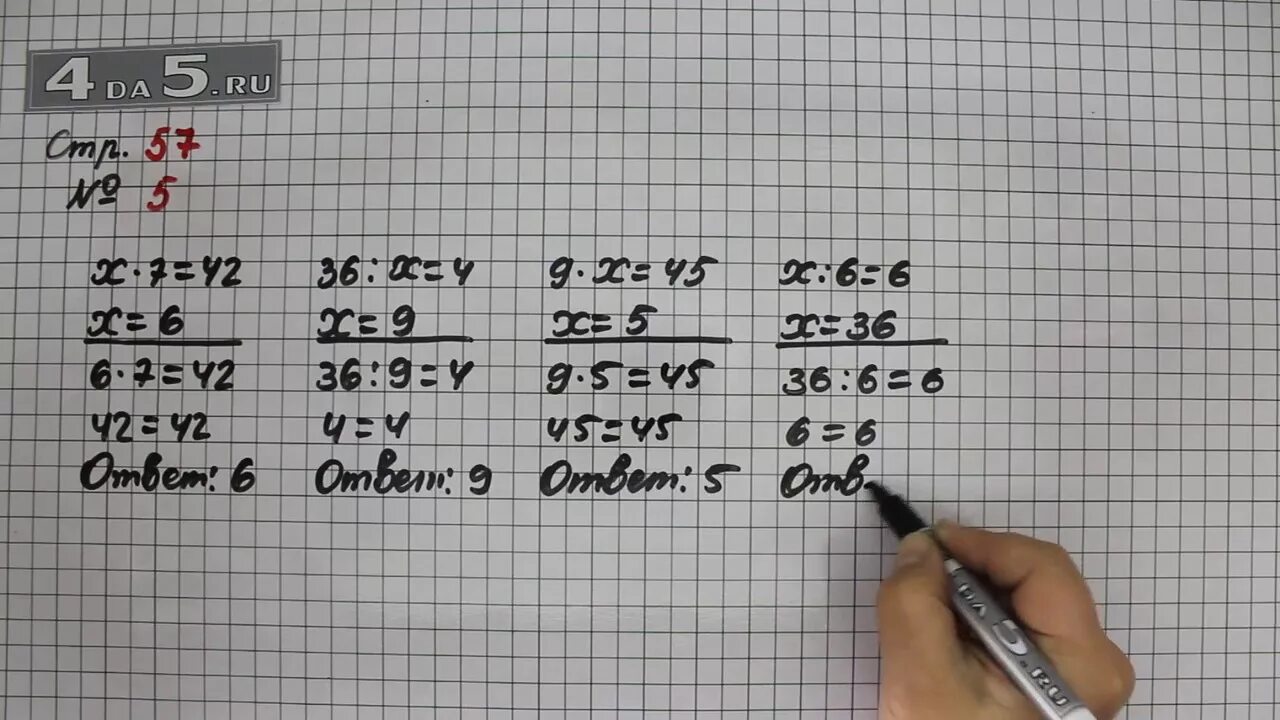 4 DA 5.RU
Стр. 57
№ 5
x·7=42
x=6
6·7=42
42=42
Ответ: 6
36:x=4
x=9
36:9=4
4=4
Ответ: 9
9·x=45
x=5
9·5=45
45=45
Ответ: 5
x:6=6
x=36
36:6=6
6=6
Отв
DA 5.RU